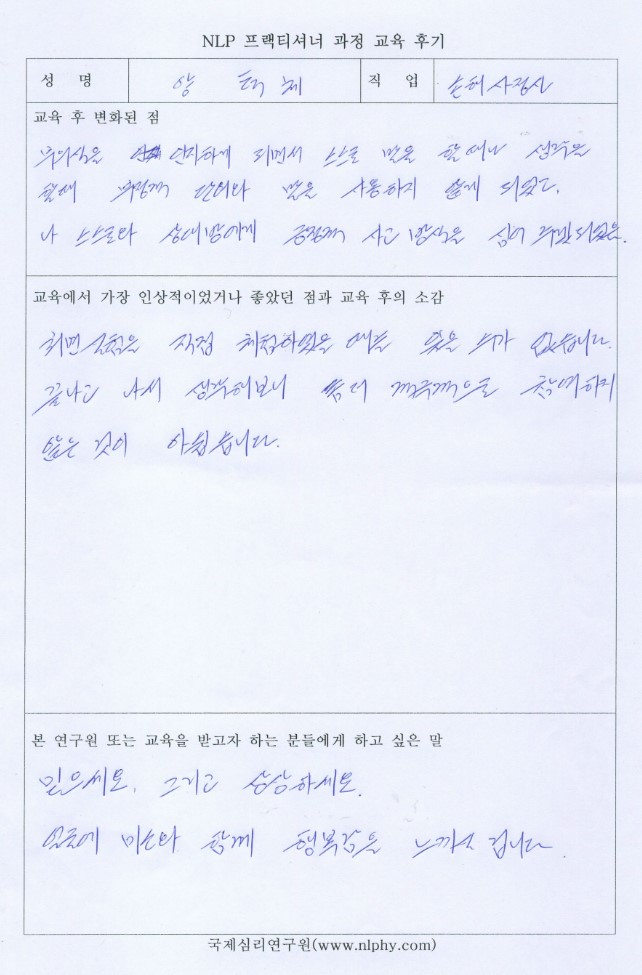 NLP 프랙티셔너 과정 교육 후기
성 명
직 업 손해사정사
교육 후 변화된 점
무의식을 인지하게 되면서 스스로 말을 할때나 생각을
할때 부정적 단어와 말을 사용하지 않게 되었다.
나 스스로와 상대방에게 긍정적 사고 방식을 심어
교육에서 가장 인상적이었거나 좋았던 점과 교육 후의 소감
최면 직접 체험하였을 때를 잊을 수가 없습니다.
끝나고 나서 생각해보니 좀더 적극적으로 참여하지
않은 것이 아쉽습니다.
본 연구원 또는 교육을 받고자 하는 분들에게 하고 싶은 말
믿으세요. 그리고 상상하세요.
얼굴에 미소와 함께 행복감을 느끼실 겁니다.
국제심리연구원(www.nlphy.com)